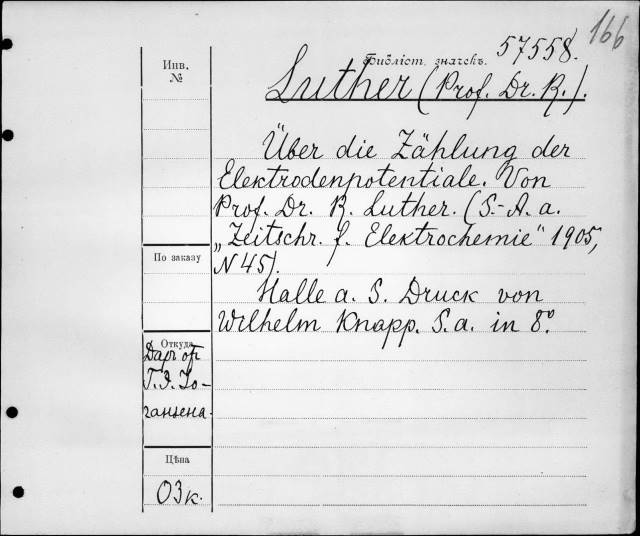 166
57558.
Библіот. значекъ.
Инв.
№
Luther (Prof. Dr. R.).
Über die Zählung der
Elektrodenpotentiale. Von
Prof. Dr. R. Luther. (S.-A. a.
„Zeitschr. f. Elektrochemie“ 1905,
N 45).
Halle a. S. Druck von
Wilhelm Knapp. S. a. in 8º.
По заказу
Откуда
Даръ отъ
Г. Э. Іо-
гансена.
Цѣна
03 к.